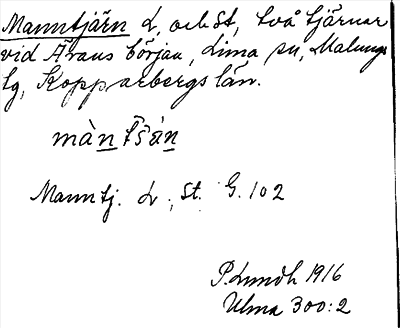 Manntjärn L. och St, två tjärnar
vid Årans början, Lima sn, Malungs
tg, Kopparbergs län.
màntšä́n
Manntj. L, St. G. 102
P. Lundh 1916
Ulma 300:2